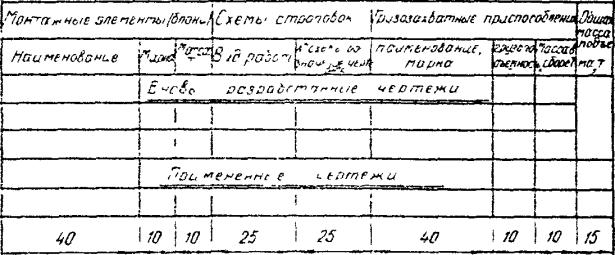 Монтажные элементы (блоки) Схемы строповок Грузозахватные приспособления Общая масса подъема, т
Наименование Марка Масса т Вид работ наименование, марка Масса
разработанные чертежи
Примененные чертежи
40 10 10 25 25 40 10 10 15